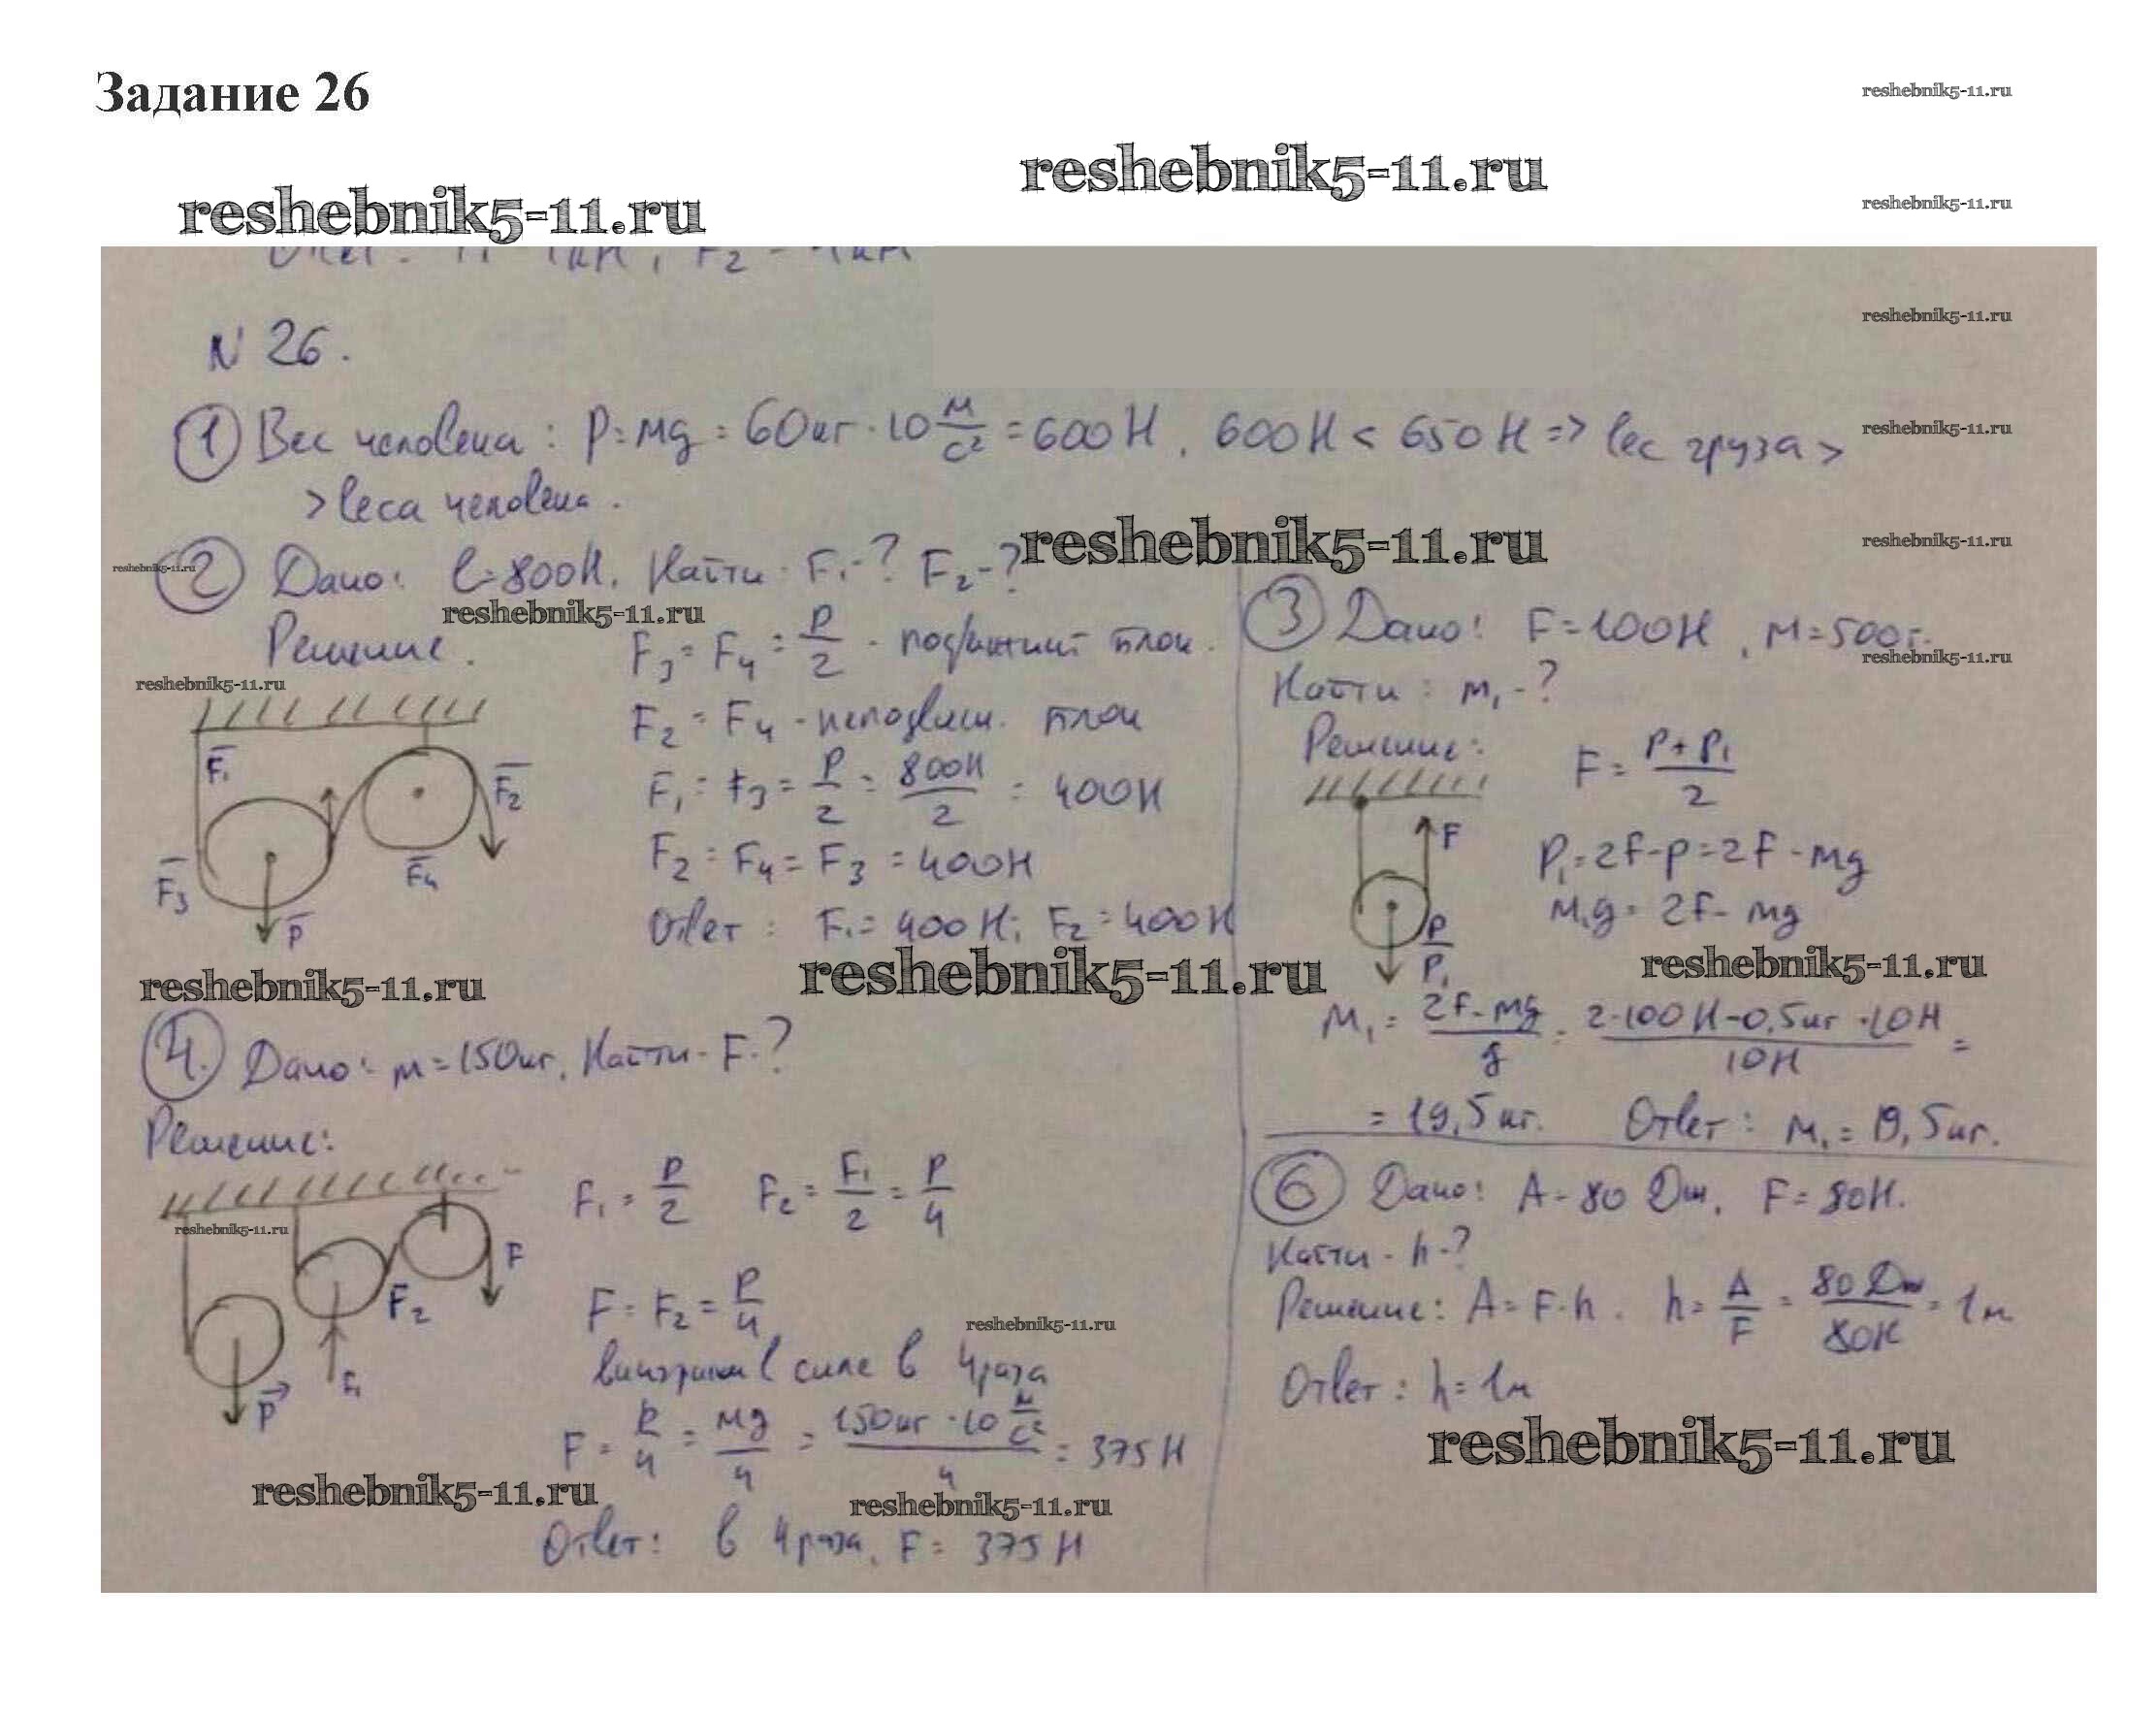 Задание 26
reshebnik5-11.ru
reshebnik5-11.ru
reshebnik5-11.ru
reshebnik5-11.ru
N 26.
reshebnik5-11.ru
① Вес человека: P=mg=60кг·10 м/с² =600Н, 600Н < 650Н => вес груза >
reshebnik5-11.ru
> веса человека.
reshebnik5-11.ru
reshebnik5-11.ru
reshebnik5-11.ru
② Дано: P=800Н. Найти: F₁-? F₂-?
reshebnik5-11.ru
Решение.
reshebnik5-11.ru
F₃=F₄=P/2 - подвижный блок.
F₂=F₄ - неподвиж. блок
F₁=F₃=P/2=800Н/2=400Н
F₂=F₄=F₃=400Н
Ответ: F₁=400Н; F₂=400Н
F₁
F₂
F₃
F₄
P
reshebnik5-11.ru
reshebnik5-11.ru
③ Дано: F=100Н, m=500г.
reshebnik5-11.ru
Найти: m₁-?
Решение:
F=(P+P₁)/2
P₁=2F-P=2F-mg
m₁g=2F-mg
F
P
P₁
reshebnik5-11.ru
m₁=(2F-mg)/g=(2·100Н-0,5кг·10Н)/10Н=
=19,5кг. Ответ: m₁=19,5кг.
④. Дано: m=150кг. Найти-F-?
Решение:
reshebnik5-11.ru
F₁=P/2 F₂=F₁/2=P/4
F=F₂=P/4
reshebnik5-11.ru
выигрыш в силе в 4 раза
F=P/4=mg/4=(150кг·10 м/с²)/4=375Н
F
F₂
F₁
P
reshebnik5-11.ru
reshebnik5-11.ru
Ответ: в 4 раза, F=375Н
⑥ Дано: A=80 Дж, F=80Н.
Найти-h-?
Решение: A=F·h. h=A/F=80Дж/80Н=1м
Ответ: h=1м
reshebnik5-11.ru